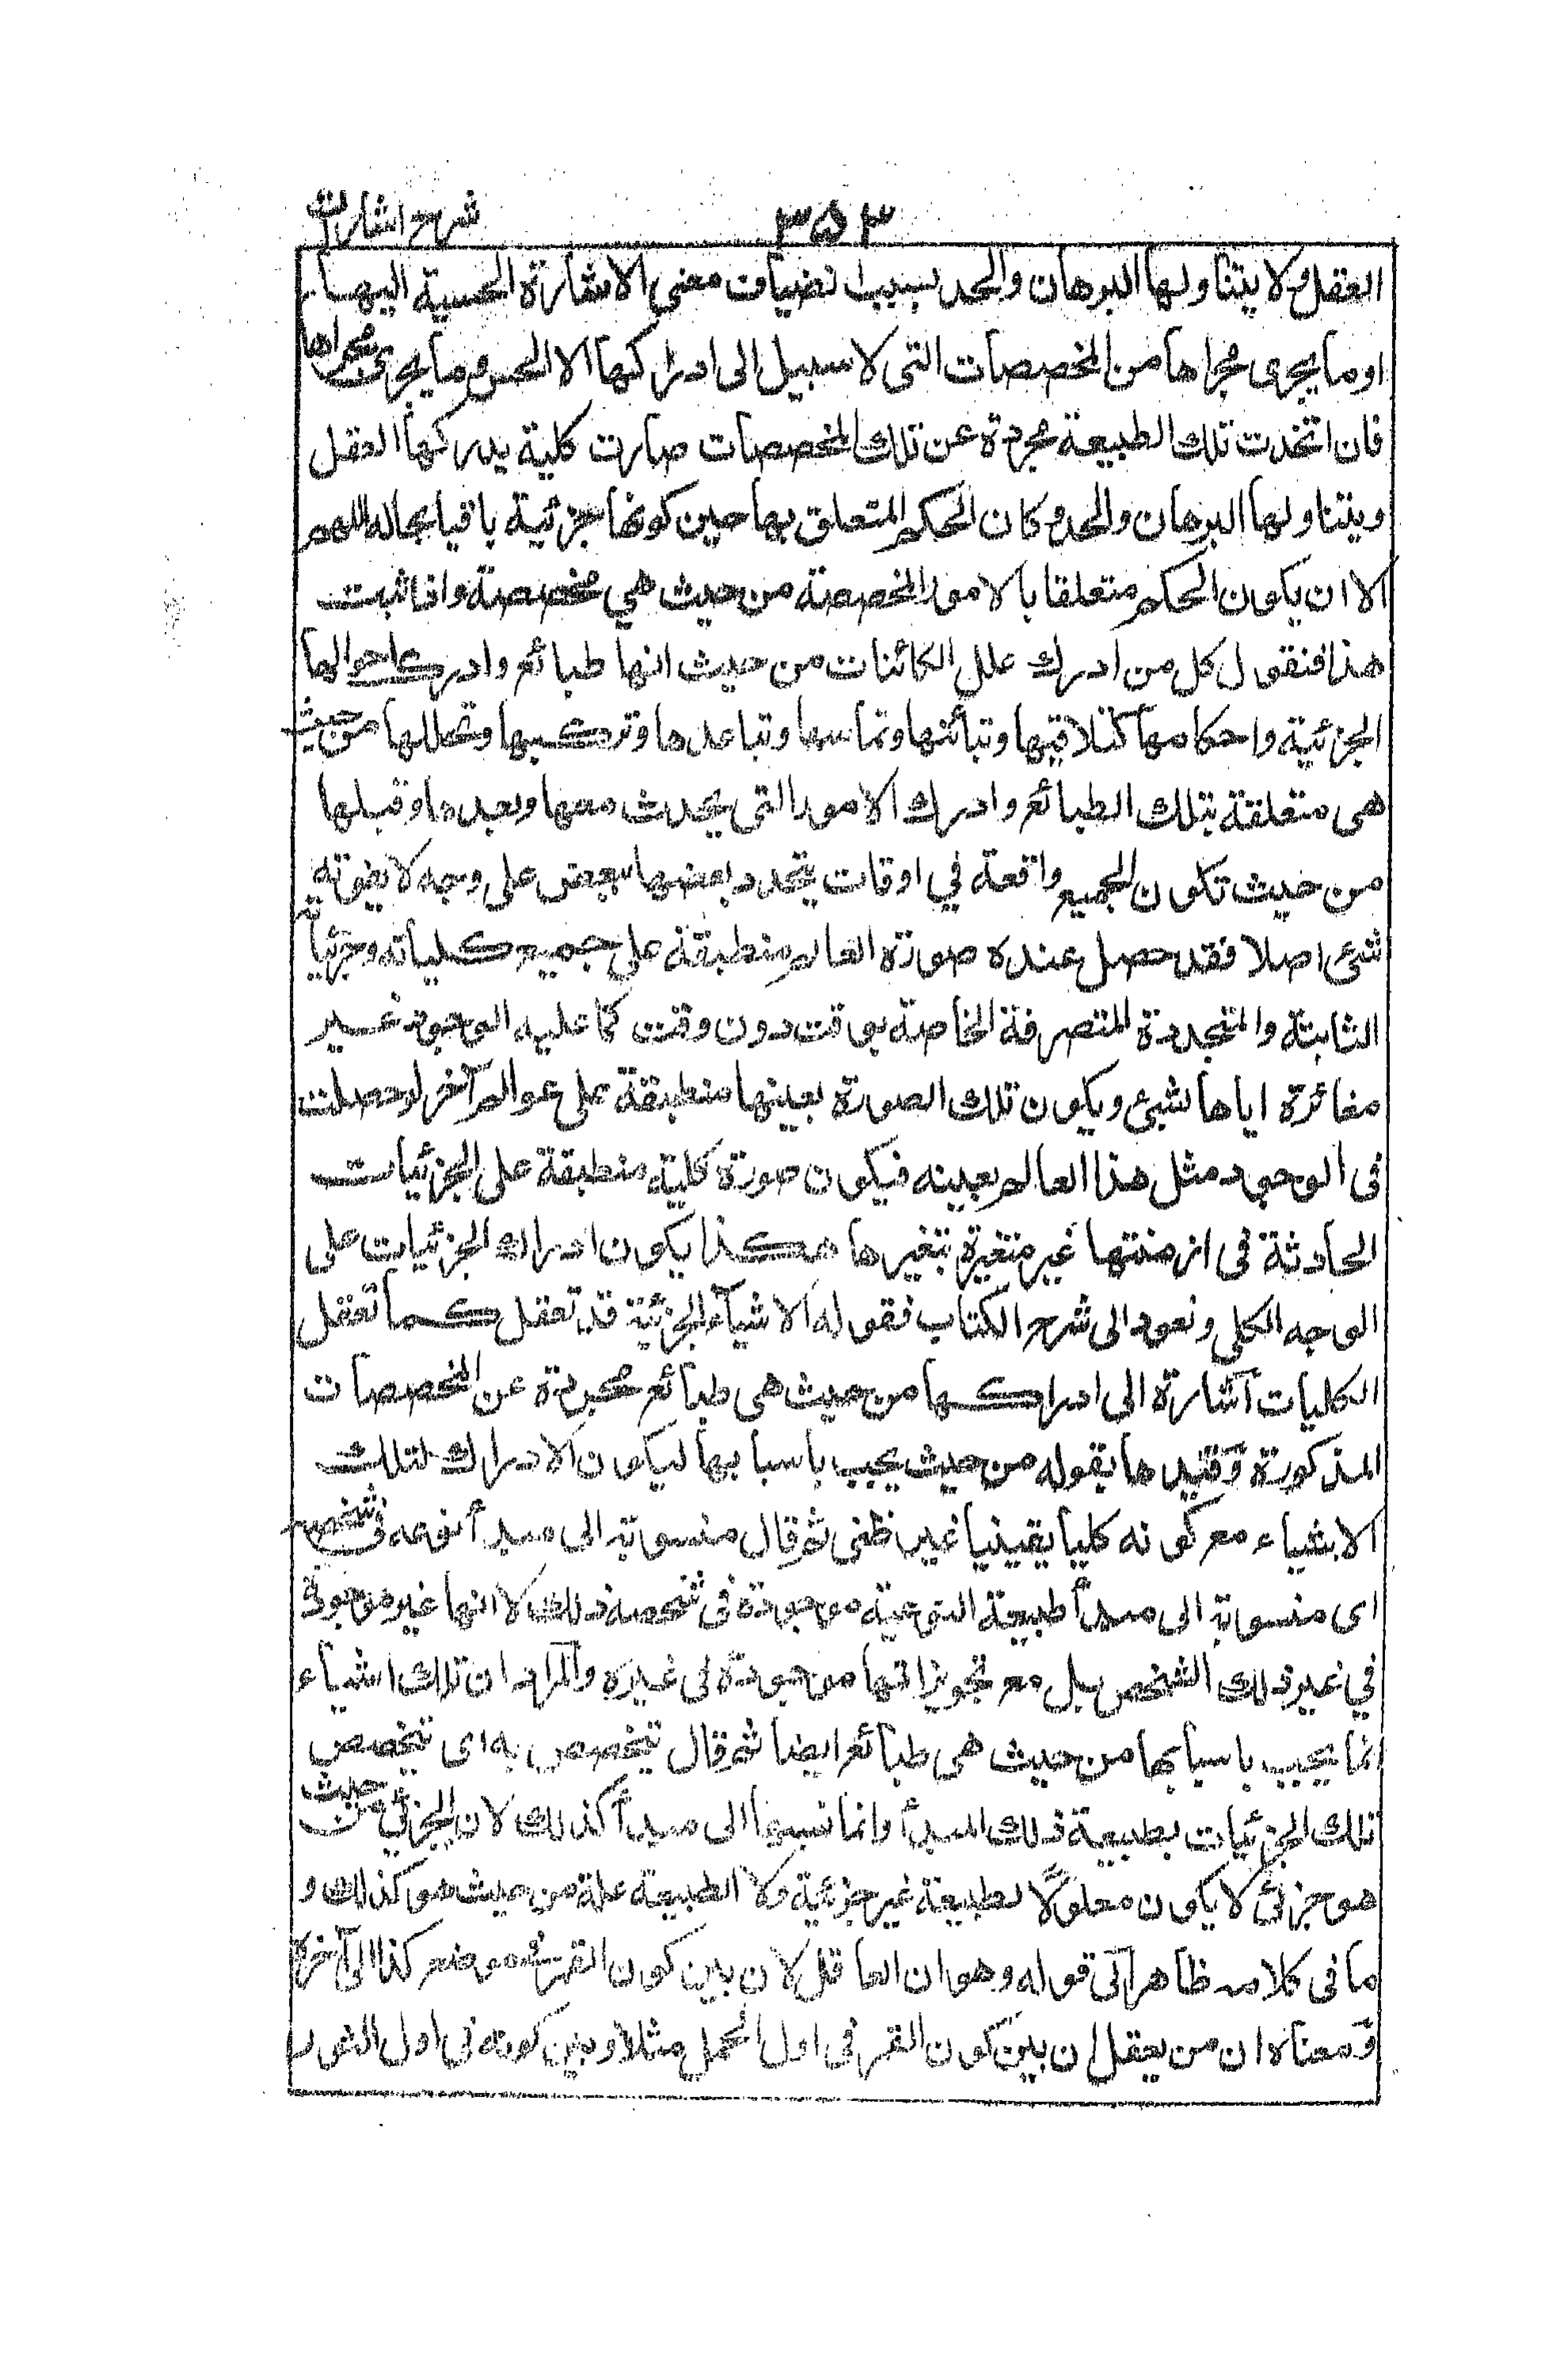 شرح اشارات
٣٥٣
العقل ولا يتناولها البرهان والحد بسبب انضياف معنى الاشارة الحسية اليها
او ما يجرى مجراها من المخصصات التى لا سبيل الى ادراكها الا الحس وما يجرى مجراها
فان اتخذت تلك الطبيعة مجردة عن تلك المخصصات صارت كلية يدركها العقل
ويتناولها البرهان والحد وكان الحكم المتعلق بها حين كونها جزئية باقيا بحاله اللهم
الا ان يكون الحكم متعلقا بالامور المخصصة من حيث هي مخصصة واذا ثبت
هذا فنقول كل من ادرك علل الكائنات من حيث انها طبائع وادرك احوالها
الجزئية واحكامها كتلاقيها وتبائنها وتماسها وتباعدها وتركيبها وتحللها من حيث
هى متعلقة بتلك الطبائع وادرك الامور التى يحدث معها وبعدها وقبلها
من حيث تكون الجميع واقعة في اوقات يتحدد بعضها ببعض على وجه لا يفوته
شئ اصلا فقد حصل عنده صورة العالم منطبقة على جميع كلياته وجزئياته
الثابتة والمتجددة المتصرفة الخاصة بوقت دون وقت كما عليه الوجود غير
مغائرة اياها لشئ ويكون تلك الصورة بعينها منطبقة على عوالم آخر لو حصلت
فى الوجود مثل هذا العالم بعينه فيكون صورة كلية منطبقة على الجزئيات
الحادثة فى ازمنتها غير متغيرة بتغيرها هكذا يكون ادراك الجزئيات على
الوجه الكلى ونعود الى شرح الكتاب فقوله الاشياء الجزئية قد تعقل كما تعقل
الكليات اشارة الى ادراكها من حيث هى طبائع مجردة عن المخصصات
المذكورة وقيدها بقوله من حيث يجب باسبابها ليكون الادراك لتلك
الاشياء مع كونه كليا يقينيا غير ظنى ثم قال منسوبة الى مبدأ نوعه فى شخصه
اى منسوبة الى مبدأ طبيعة النوعية موجودة فى شخصه ذلك لا انها غير موجودة
في غير ذلك الشخص بل مع تجويز انها موجودة فى غيره والمراد ان تلك اشياء
انما يجب باسبابها من حيث هى طبائع ايضا ثم قال تتخصص به اى تتخصص
تلك الجزئيات بطبيعة ذلك المبدأ وانما نسبها الى مبدأ كذلك لان الجزئي من حيث
هو جزئى لا يكون معلولا لطبيعة غير جزئية ولا الطبيعة علة من حيث هو كذلك و
ما فى كلامه ظاهر الى قوله وهو ان العاقل لان بين كون القمر فى موضع كذا الى آخره
ومعناه ان من يعقل ان بين كون القمر فى اول الحمل مثلا وبين كونه فى اول الثور